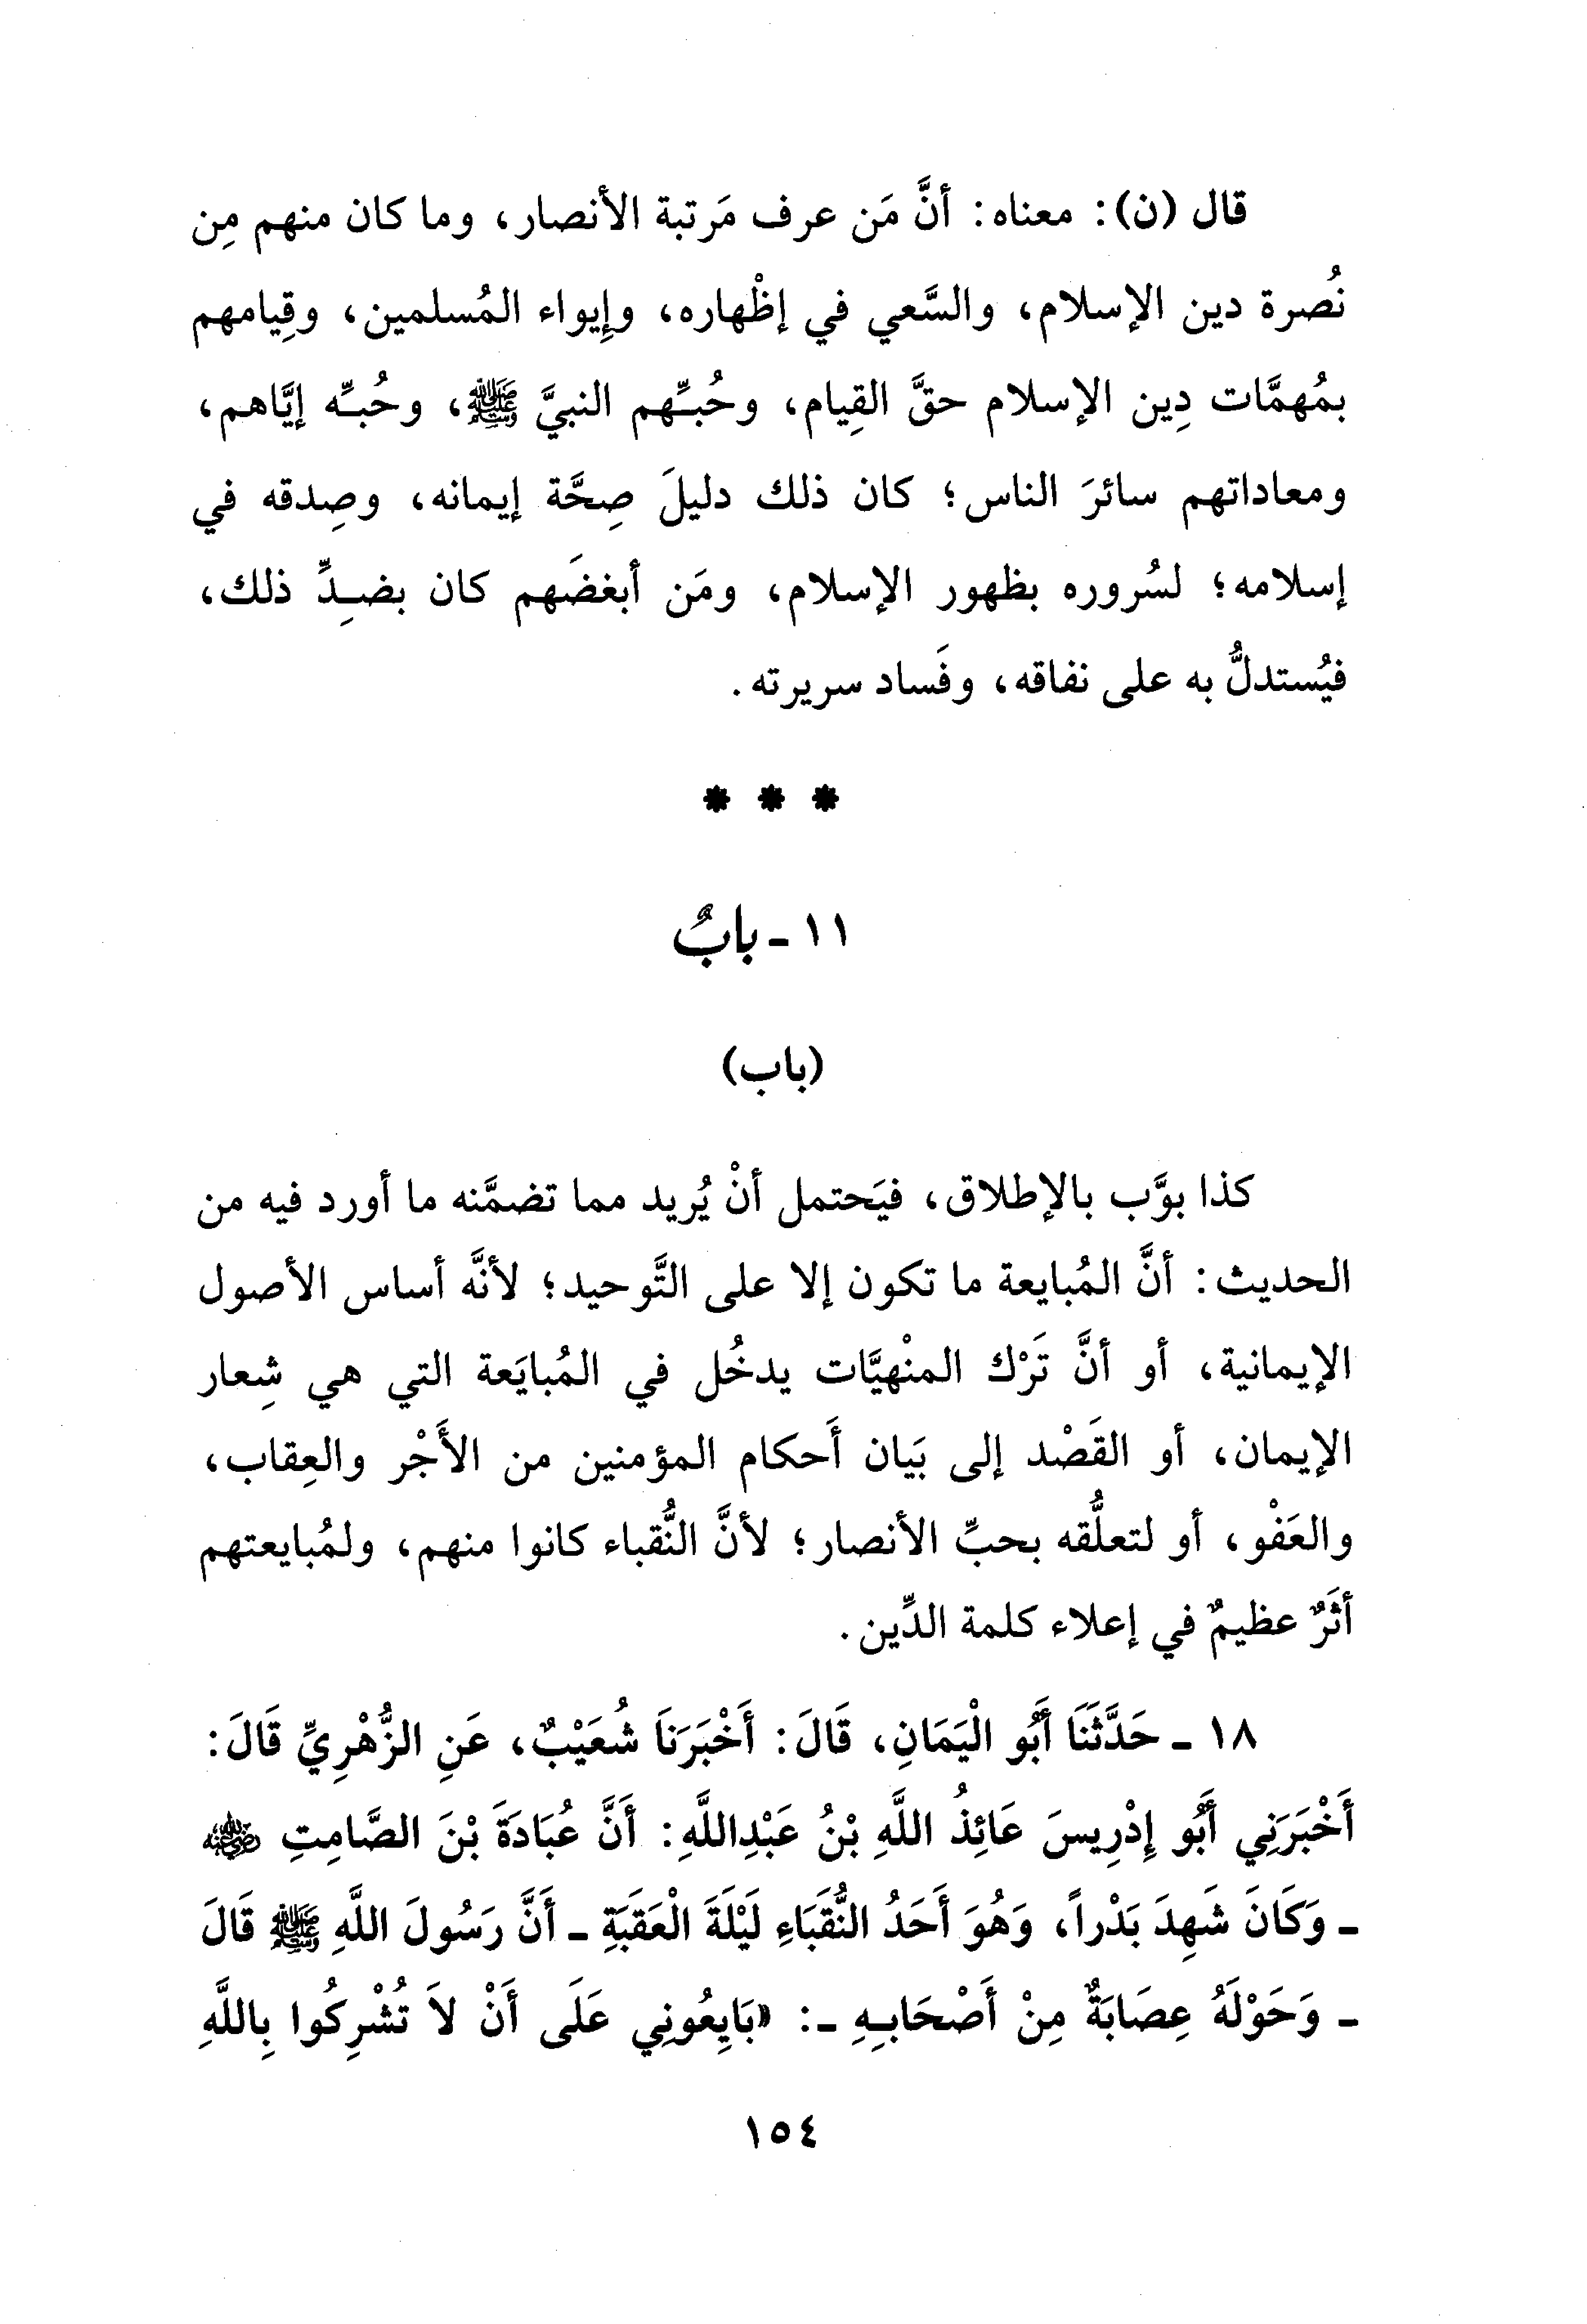 قال (ن): معناه: أنَّ مَن عرف مَرتبة الأنصار، وما كان منهم مِن
نُصرة دين الإسلام، والسَّعي في إظْهاره، وإِيواء المُسلمين، وقِيامهم
بمُهمَّات دِين الإسلام حقَّ القِيام، وحُبـِّهم النبيَّ ﷺ، وحُبـِّه إيَّاهم،
ومعاداتهم سائرَ الناس؛ كان ذلك دليلَ صِحَّة إيمانه، وصِدقه في
إسلامه؛ لسُروره بظهور الإسلام، ومَن أبغضَهم كان بضـِدِّ ذلك،
فيُستدلُّ به على نفاقه، وفَساد سريرته.
* * *
١١ - بابٌ
(باب)
كذا بوَّب بالإطلاق، فيَحتمل أنْ يُريد مما تضمَّنه ما أورد فيه من
الحديث: أنَّ المُبايعة ما تكون إلا على التَّوحيد؛ لأنَّه أساس الأصول
الإيمانية، أو أنَّ تَرْك المنْهيَّات يدخُل في المُبايَعة التي هي شِعار
الإيمان، أو القَصْد إلى بَيان أَحكام المؤمنين من الأَجْر والعِقاب،
والعَفْو، أو لتعلُّقه بحبِّ الأنصار؛ لأنَّ النُّقباء كانوا منهم، ولمُبايعتهم
أثَرٌ عظيمٌ في إعلاء كلمة الدِّين.
١٨ - حَدَّثَنَا أَبُو الْيَمَانِ، قَالَ: أَخْبَرَنَا شُعَيْبٌ، عَنِ الزُّهْرِيِّ قَالَ:
أَخْبَرَنِي أَبُو إِدْرِيسَ عَائِذُ اللَّهِ بْنُ عَبْدِاللَّهِ: أَنَّ عُبَادَةَ بْنَ الصَّامِتِ ﷛
- وَكَانَ شَهِدَ بَدْراً، وَهُوَ أَحَدُ النُّقَبَاءِ لَيْلَةَ الْعَقَبَةِ - أَنَّ رَسُولَ اللَّهِ ﷺ قَالَ
- وَحَوْلَهُ عِصَابَةٌ مِنْ أَصْحَابـِهِ -: «بَايِعُونِي عَلَى أَنْ لاَ تُشْرِكُوا بِاللَّهِ
١٥٤